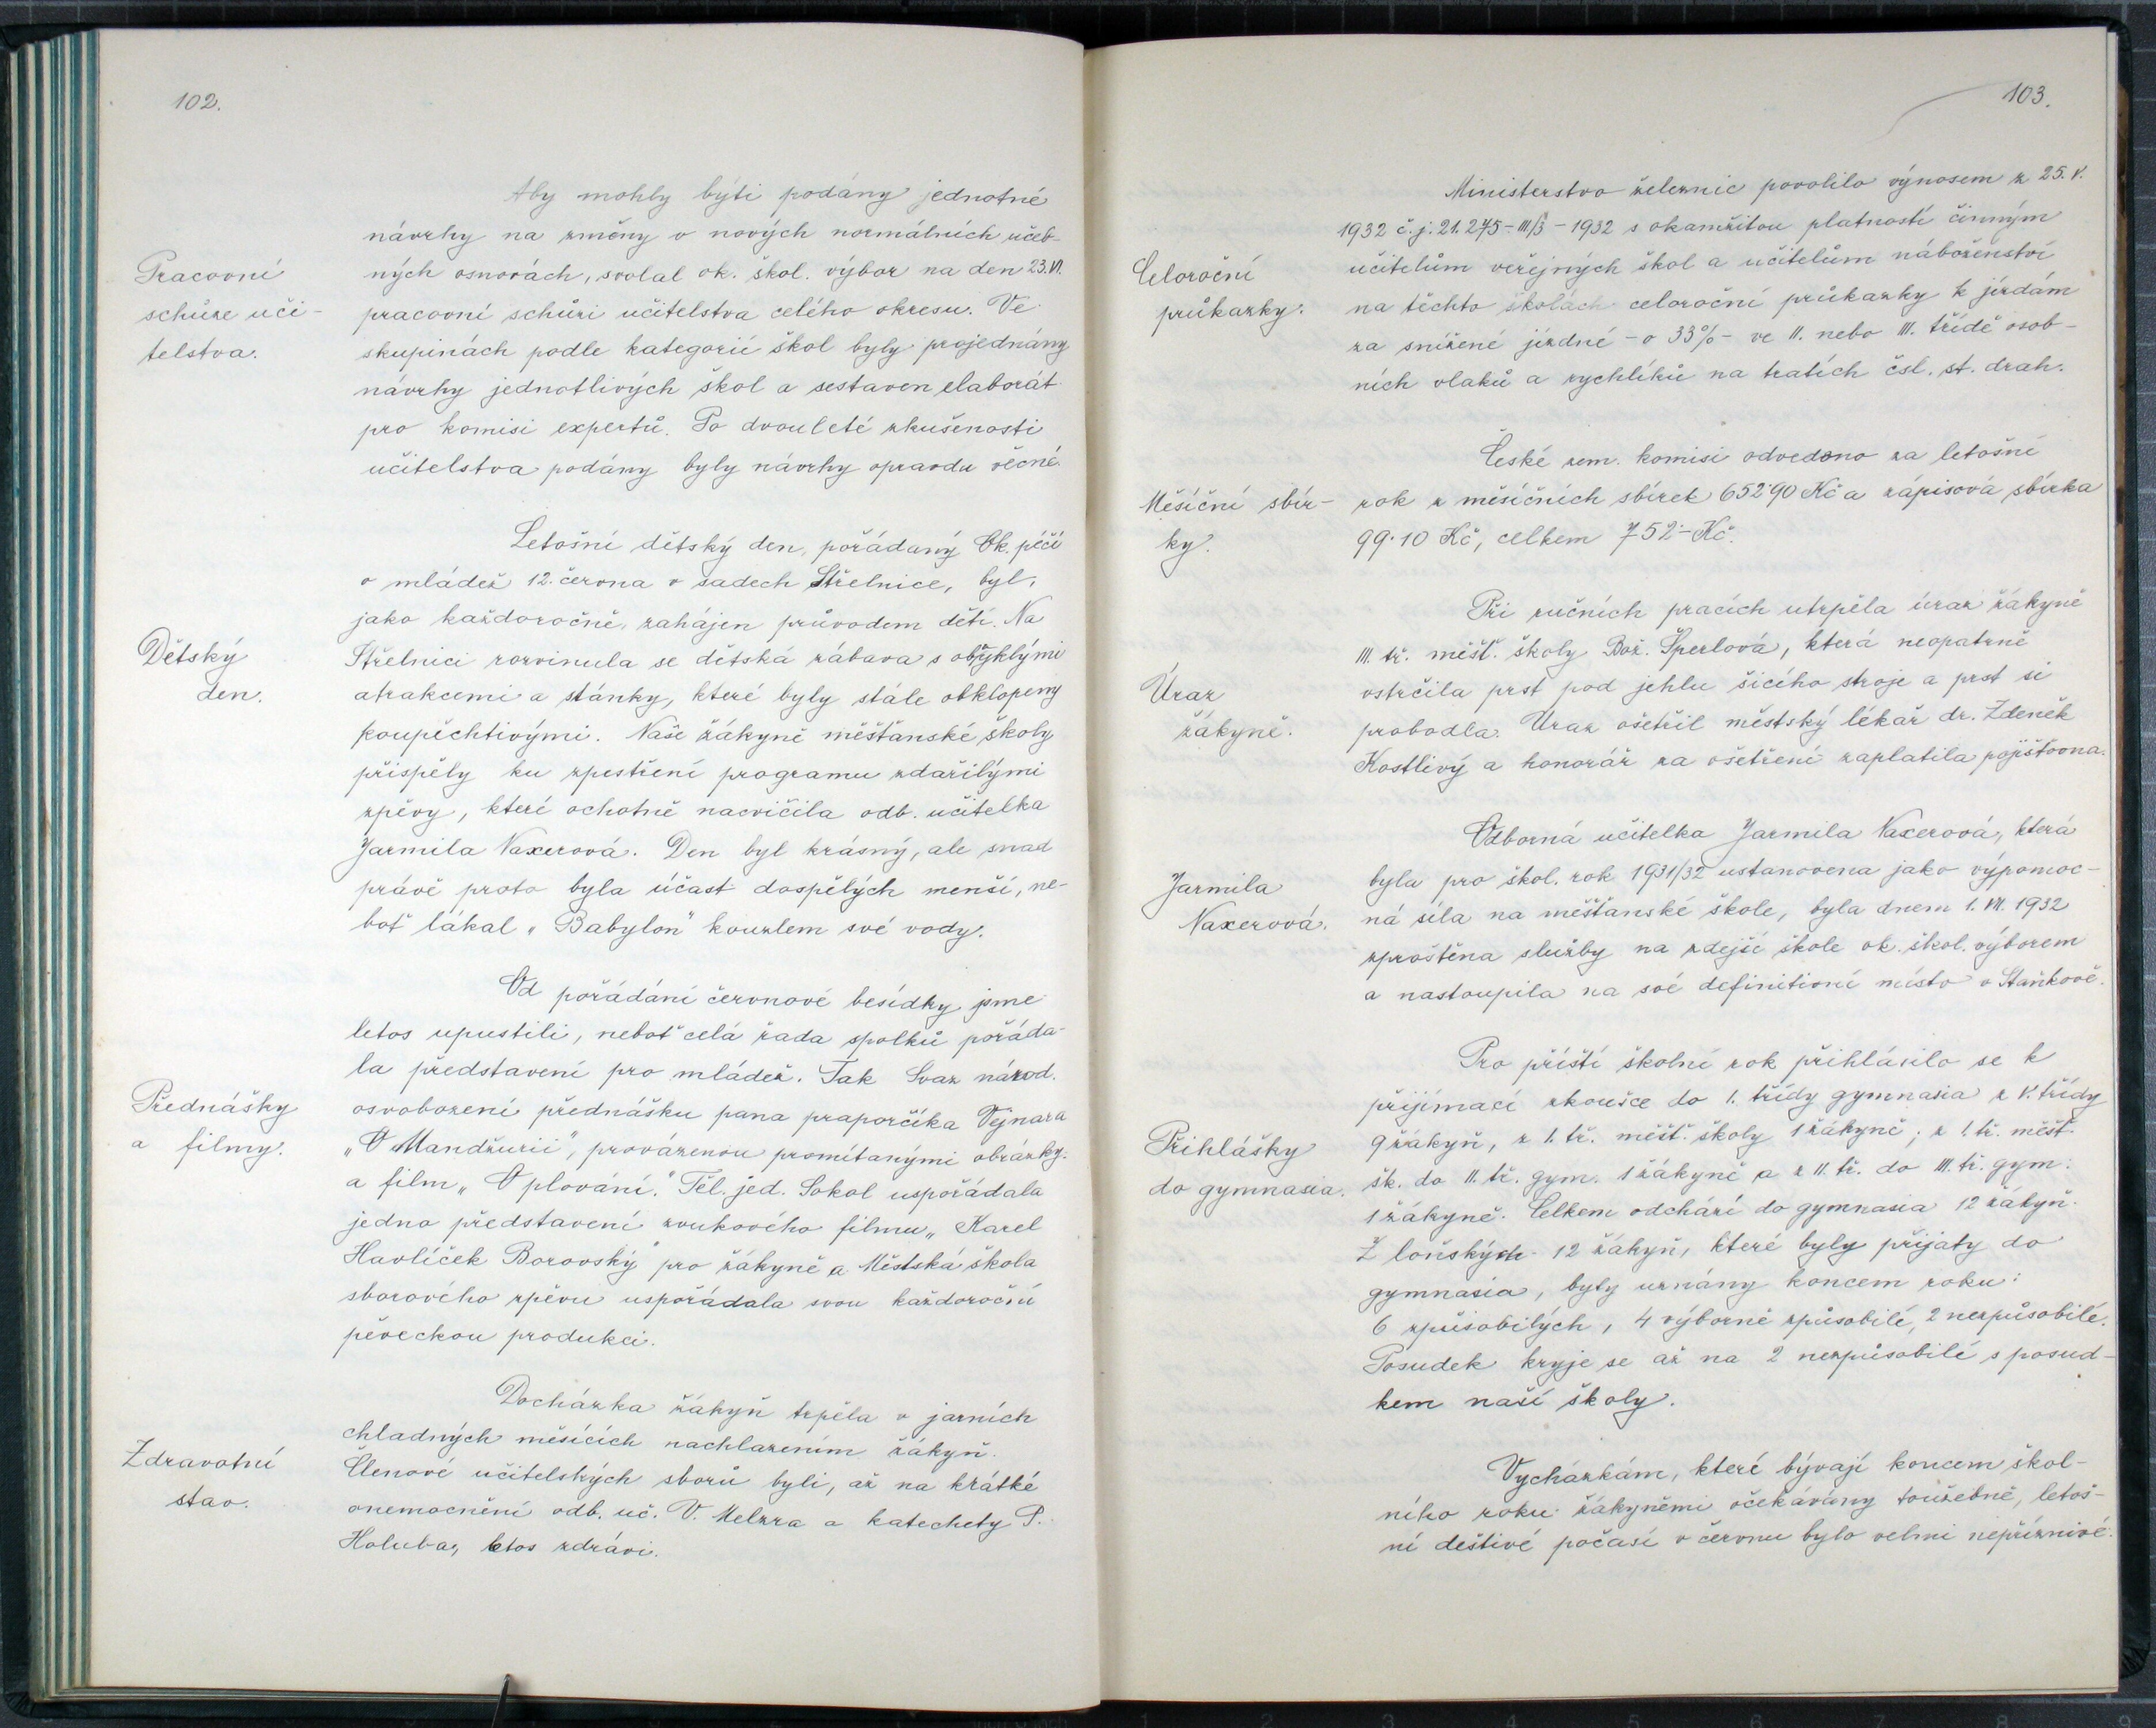 102.
Aby mohly býti podány jednotné
návrhy na změny v nových normálních učeb-
Pracovní
schůze uči-
telstva.
ných osnovách, svolal ok. škol. výbor na den 23. VI.
pracovní schůzi učitelstva celého okresu. Ve
skupinách podle kategorií škol byly projednány
návrhy jednotlivých škol a sestaven elaborát
pro komisi expertů. Po dvouleté zkušenosti
učitelstva podány byly návrhy opravdu věcné.
Letošní dětský den, pořádaný Ok. péčí
o mládež 12. června v sadech Střelnice, byl,
jako každoročně, zahájen průvodem dětí. Na
Dětský
den.
Střelnici rozvinula se dětská zábava s obvyklými
atrakcemi a stánky, které byly stále obklopeny
koupěchtivými. Naše žákyně měšťanské školy
přispěly ku zpestření programu zdařilými
zpěvy, které ochotně nacvičila odb. učitelka
Jarmila Naxerová. Den byl krásný, ale snad
právě proto byla účast dospělých menší, ne-
boť lákal „Babylon" kouzlem své vody.
Od pořádání červnové besídky jsme
letos upustili, neboť celá řada spolků pořáda-
la představení pro mládež. Tak Svaz národ.
Přednášky
a filmy.
osvobození přednášku pana praporčíka Vejnara
„O Mandžurii", provázenou promítanými obrázky.
a film „O plování." Těl. jed. Sokol uspořádala
jedno představení zvukového filmu „Karel
Havlíček Borovský" pro žákyně a Městská škola
sborového zpěvu uspořádala svou každoroční
pěveckou produkci.
Docházka žákyň trpěla v jarních
chladných měsících nachlazením žákyň.
Zdravotní
stav.
Členové učitelských sborů byli, až na krátké
onemocnění odb. uč. V. Melzra a katechety P.
Holuba, letos zdrávi.
103.
Ministerstvo železnic povolilo výnosem z 25. V.
1932 č. j. 21.275-III/3-1932 s okamžitou platností činným
Celoroční
průkazky.
učitelům veřejných škol a učitelům náboženství
na těchto školách celoroční průkazky k jízdám
za snížené jízdné - o 33% - ve II. nebo III. třídě osob-
ních vlaků a rychlíků na tratích čsl. st. drah.
České zem. komisi odvedeno za letošní
Měsíční sbír-
ky.
rok z měsíčních sbírek 652·90 Kč a zápisová sbírka
99·10 Kč, celkem 752·- Kč.
Při ručních pracích utrpěla úraz žákyně
III. tř. měšť. školy Bož. Šperlová, která neopatrně
Úraz
žákyně.
vstrčila prst pod jehlu šicího stroje a prst si
probodla. Úraz ošetřil městský lékař dr. Zdeněk
Kostlivý a honorář za ošetření zaplatila pojišťovna.
Odborná učitelka Jarmila Naxerová, která
Jarmila
Naxerová.
byla pro škol. rok 1931/32 ustanovena jako výpomoc-
ná síla na měšťanské škole, byla dnem 1. VII. 1932
zproštěna služby na zdejší škole ok. škol. výborem
a nastoupila na své definitivní místo v Staňkově.
Pro příští školní rok přihlásilo se k
přijímací zkoušce do 1. třídy gymnasia z V. třídy
Přihlášky
do gymnasia.
9 žákyň, z I. tř. měšť. školy 1 žákyně; z I. tř. měšť.
šk. do II. tř. gym. 1 žákyně a z II. tř. do III. tř. gym.
1 žákyně. Celkem odchází do gymnasia 12 žákyň.
Z loňských 12 žákyň, které byly přijaty do
gymnasia, byly uznány koncem roku:
6 způsobilých, 4 výborně způsobilé, 2 nezpůsobilé.
Posudek kryje se až na 2 nezpůsobilé s posud-
kem naší školy.
Vycházkám, které bývají koncem škol-
ního roku žákyněmi očekávány toužebně, letoš-
ní deštivé počasí v červnu bylo velmi nepříznivé.